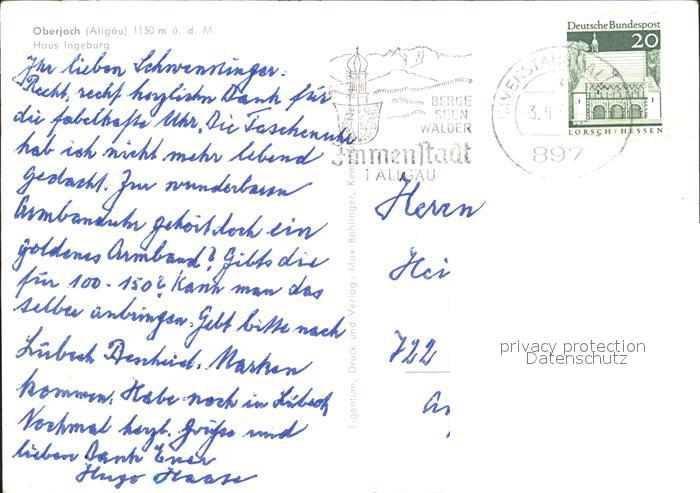 Oberjoch (Allgäu) 1150 m ü. d. M.
Haus Ingeburg
Ihr lieben Schwenninger:
Recht, recht herzlichen Dank für
die fabelhafte Uhr. Die Taschenuhr
hab ich nicht mehr lebend
gedacht. Zur wunderbaren
Armbanduhr gehört doch ein
goldenes Armband? Gibts die
für 100 - 150? Kann man das
selber anbringen. Gebt bitte nach
Lübeck Bescheid. Marken
kommen. Habe noch in Lübeck
Nochmal herzl. Grüße und
lieben Dank Euer
Hugo Haase
BERGE
SEEN
WÄLDER
Immenstadt
i ALLGÄU
IMMENSTADT
3. 9.
897
Deutsche Bundespost
20
LORSCH/HESSEN
Eigentum, Druck und Verlag: Max Bohlinger,
Herrn
Hei
722
privacy protection
Datenschutz